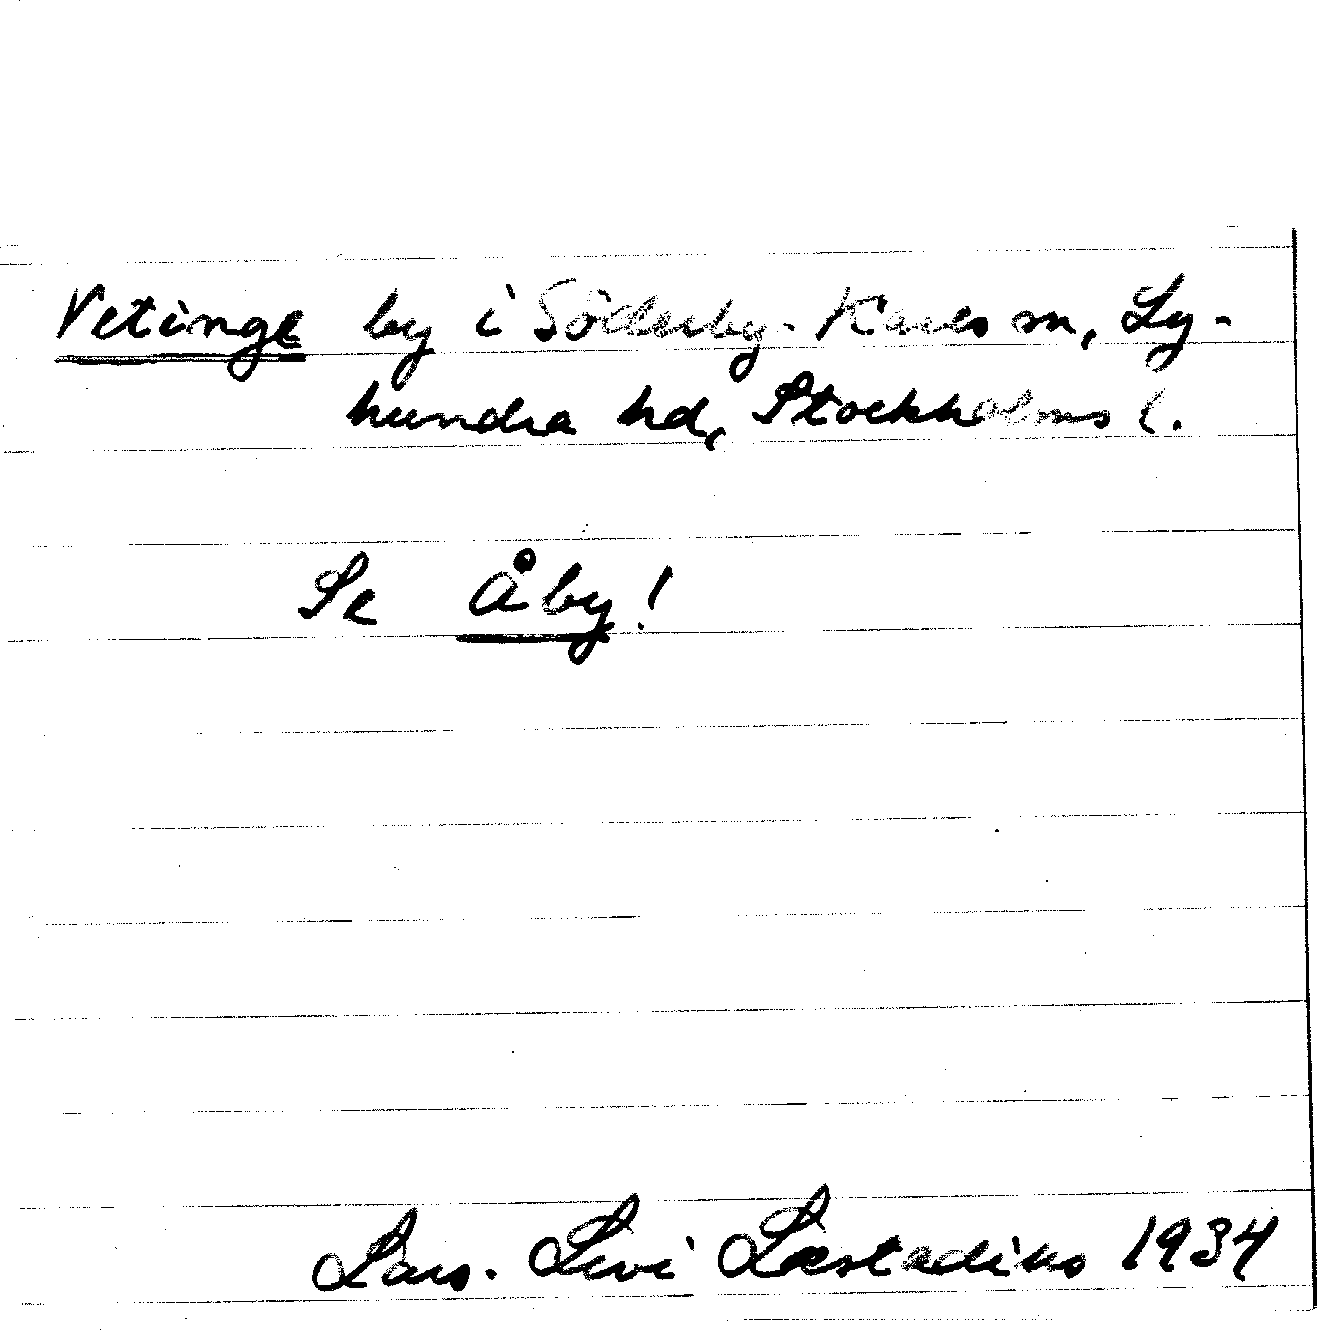 Vetinge by i Söderby-Karls sn, Ly-
hundra hd, Stockholms l.
Se Åby!
Lars-Levi Læstadius 1934